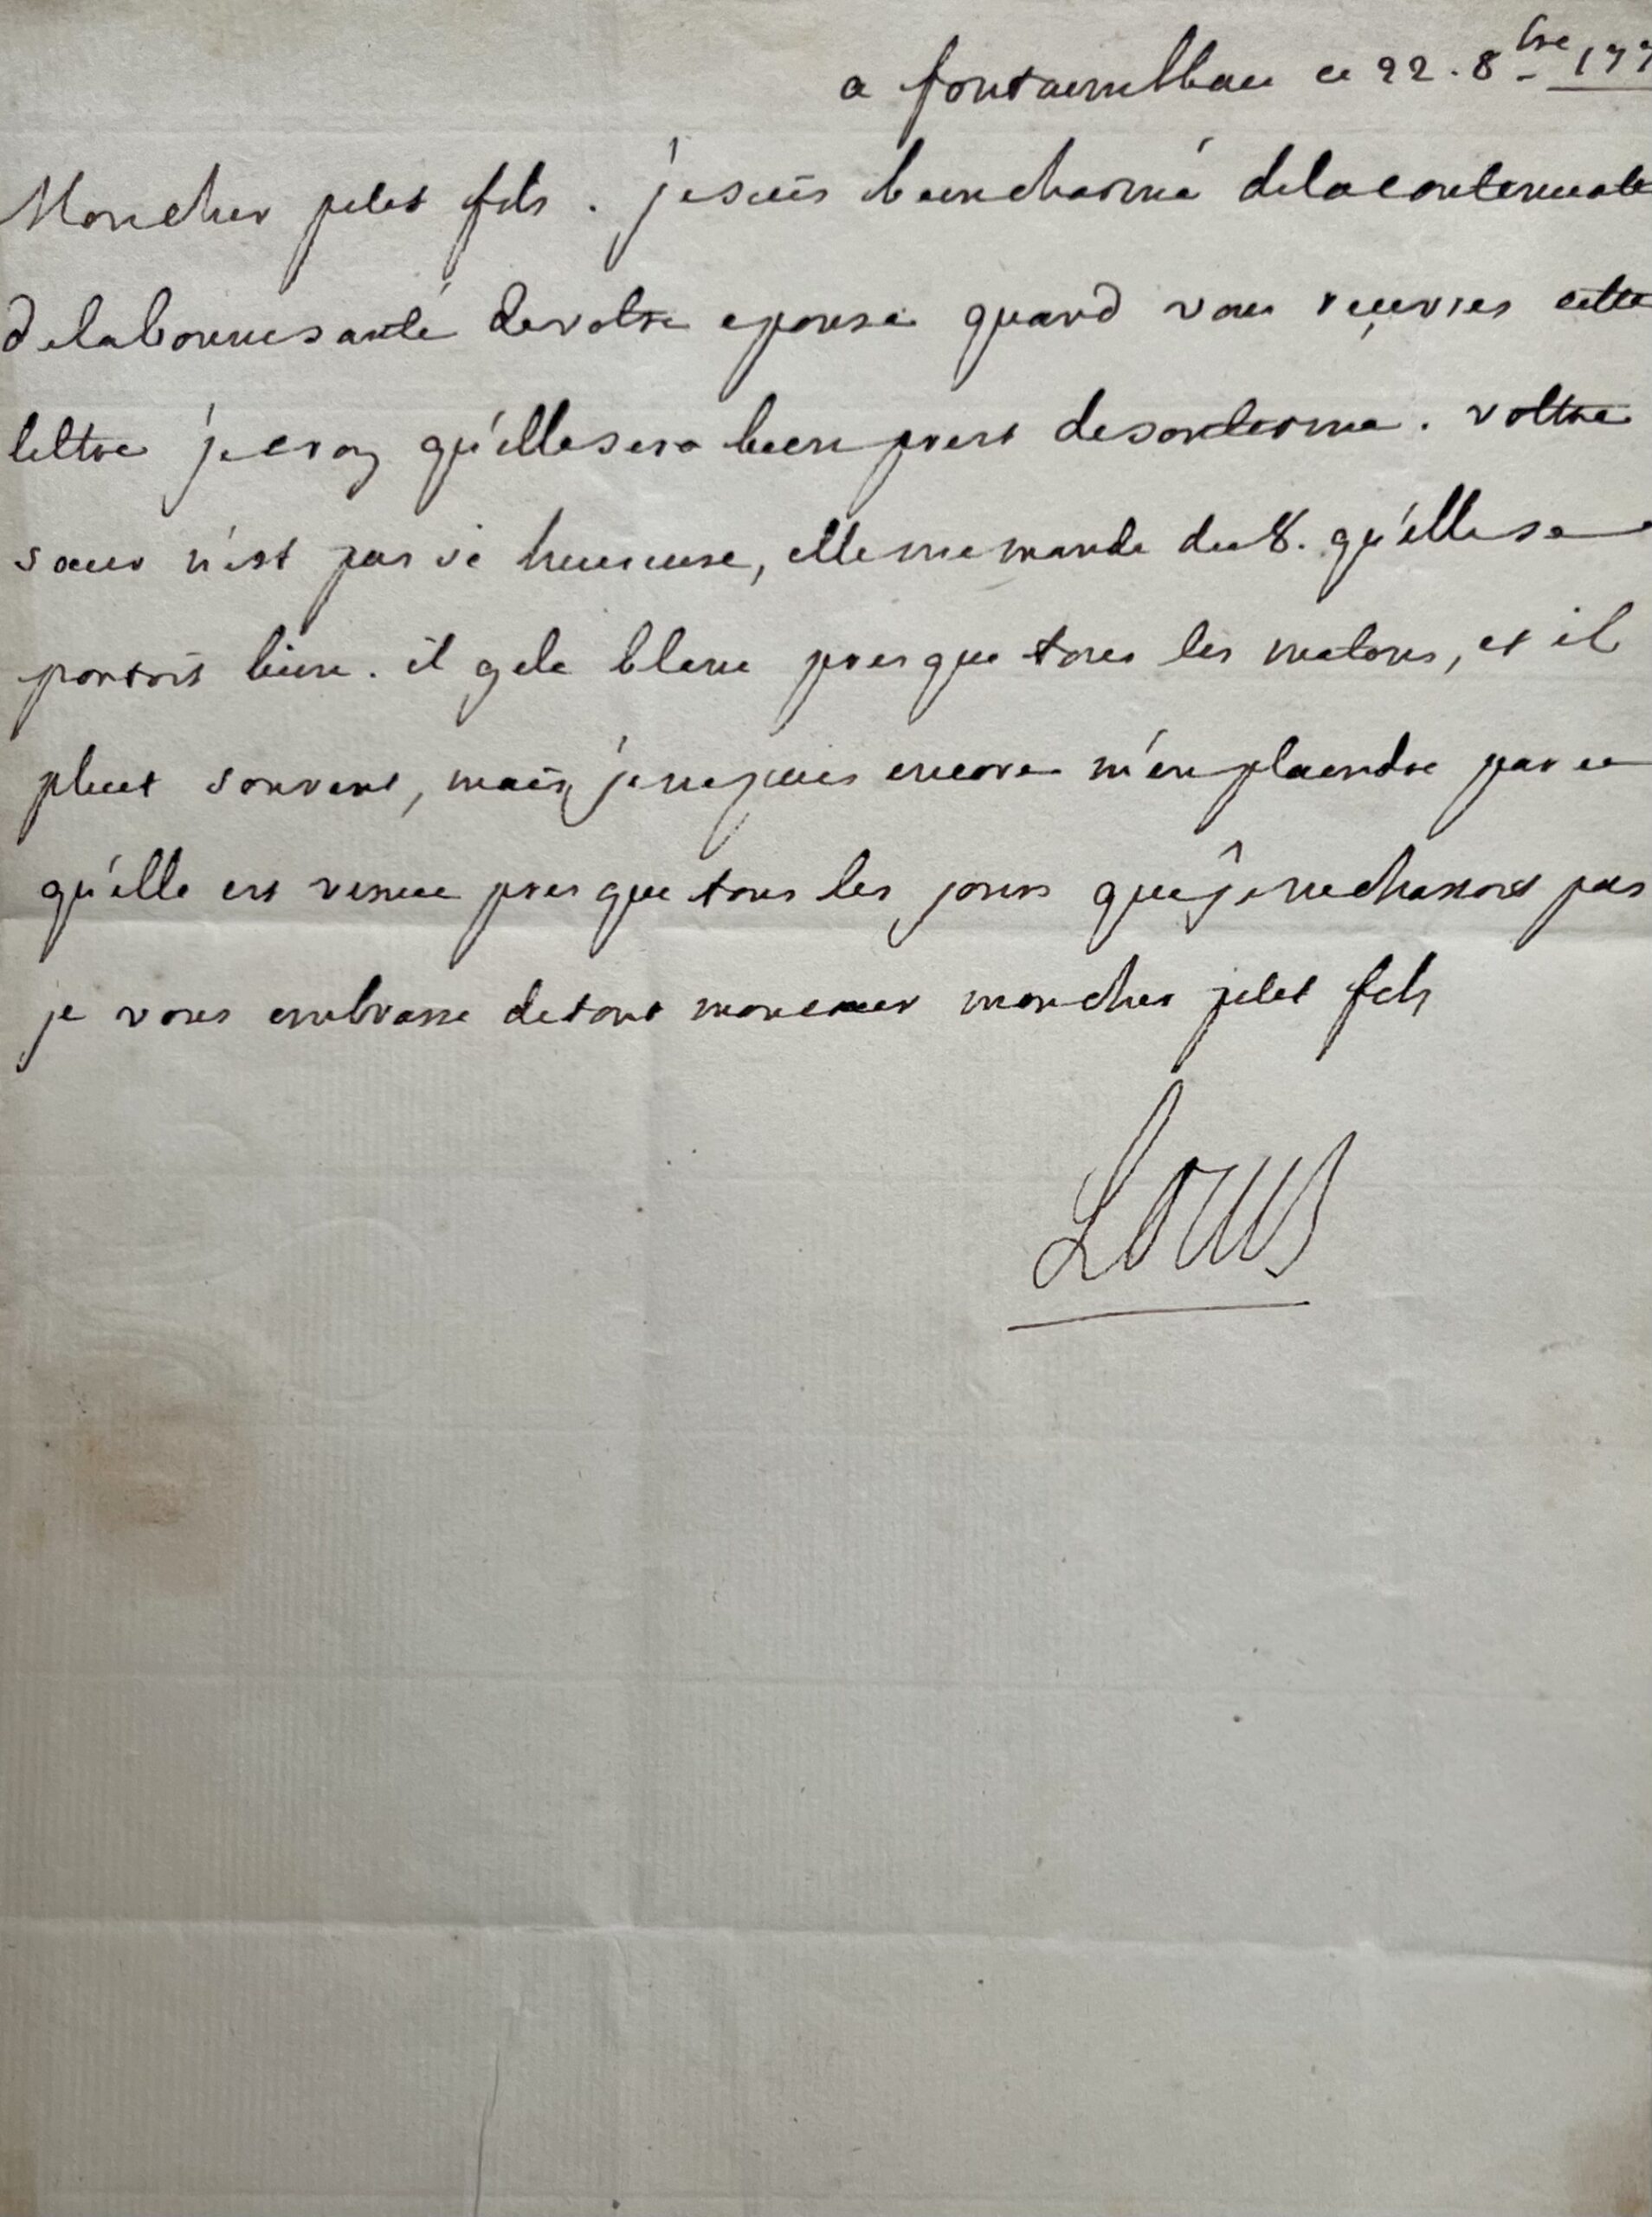 a fontainebleau ce 22. 8bre 177
Mon cher petit fils. je suis bien charmé de la continuati
de la bonne santé de vostre epouse quand vous reçevres cette
lettre je croy qu'elle sera bien prest de son terme. vostre
sœur n'est pas si heureuse, elle me mande du 8. qu'elle se
portoit bien. il gele blanc presque tous les matins, et il
pleut souvent, mais je ne puis encore m'en plaindre par ce
qu'elle est venue presque tous les jours que je ne chassois pas
je vous embrasse de tout mon cœur mon cher petit fils
Louis